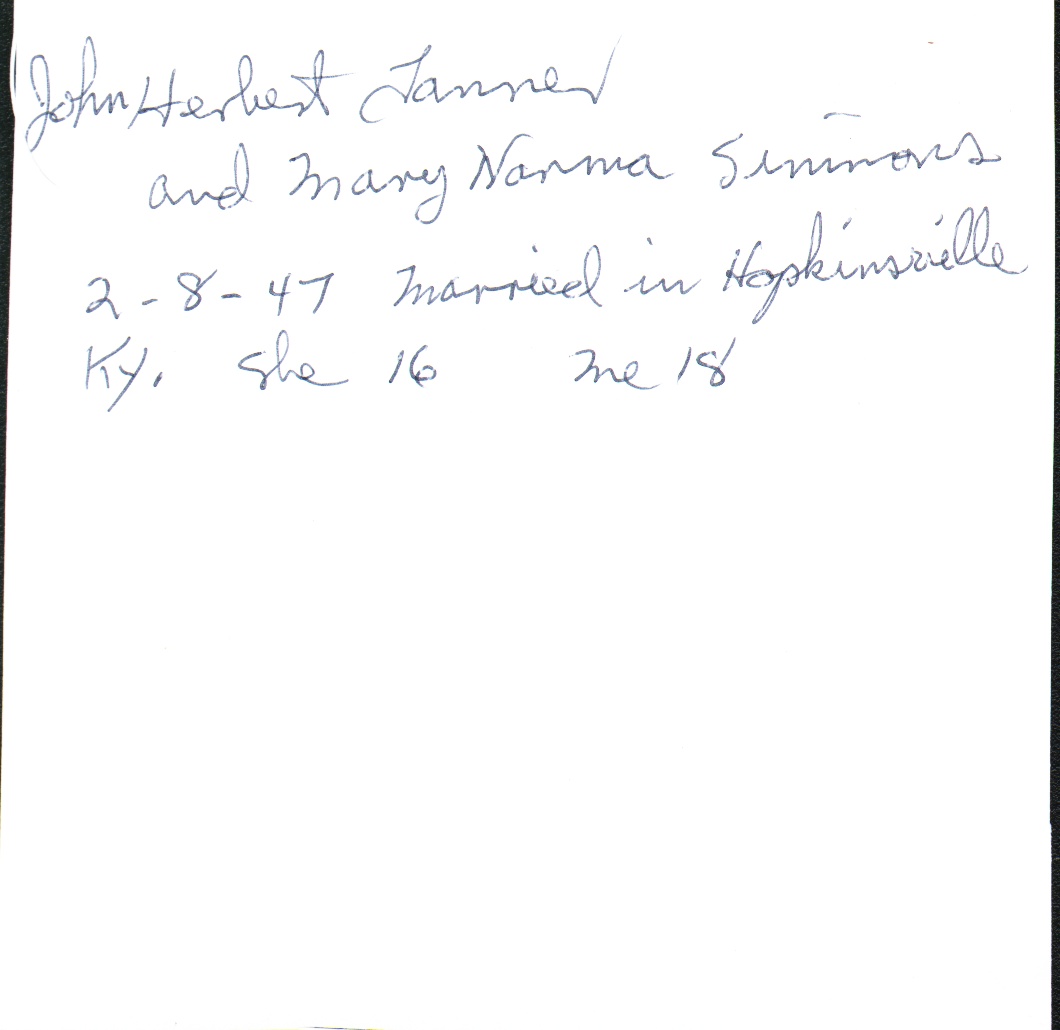 John Herbert Tanner
and Mary Norma Simmons
2-8-47 Married in Hopkinsville
Ky. She 16 me 18